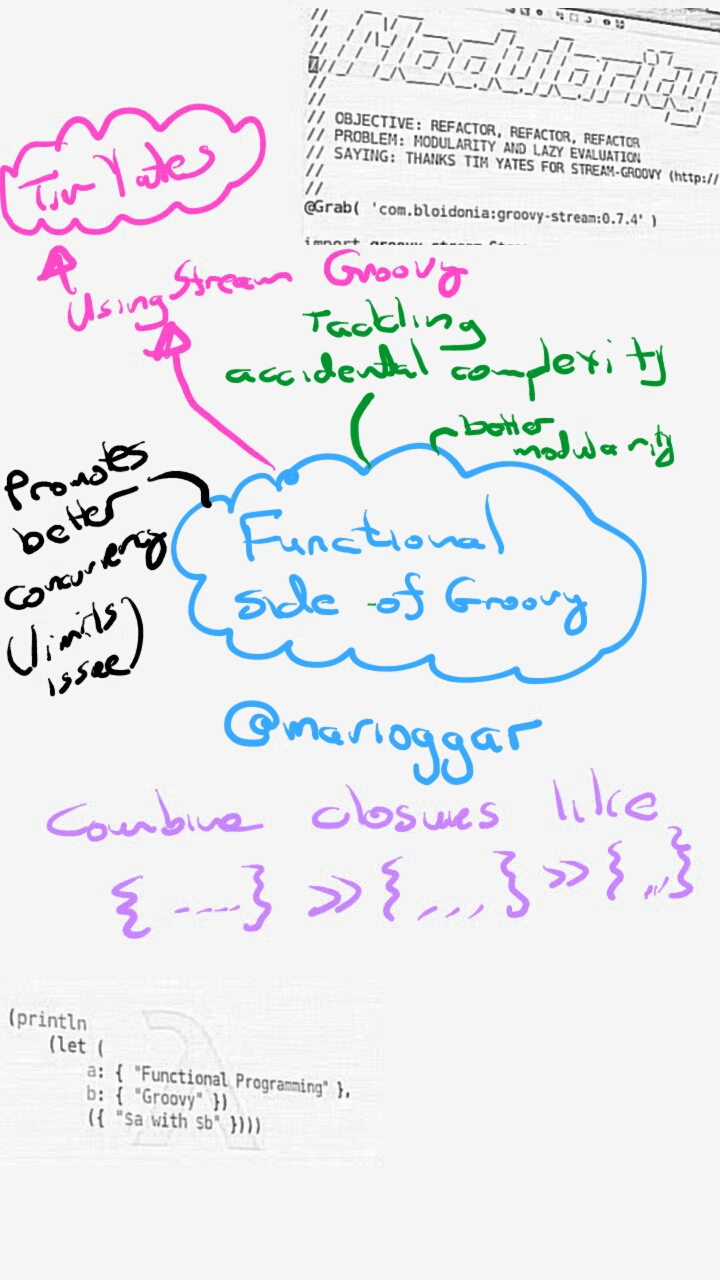 // Modularity
// OBJECTIVE: REFACTOR, REFACTOR, REFACTOR
// PROBLEM: MODULARITY AND LAZY EVALUATION
// SAYING: THANKS TIM YATES FOR STREAM-GROOVY (http://
//
//
@Grab( 'com.bloidonia:groovy-stream:0.7.4' )
import groovy.stream.Stream
Tim Yates
Using Stream Groovy
Tackling
accidental complexity
better
modularity
Promotes
better
concurrency
(limits
issee)
Functional
side of Groovy
@marioggar
Combine closures like
{ ----} >> { ,,, } >> { ,,, }
(println
(let (
a: { "Functional Programming" },
b: { "Groovy" })
({ "$a with $b" })))